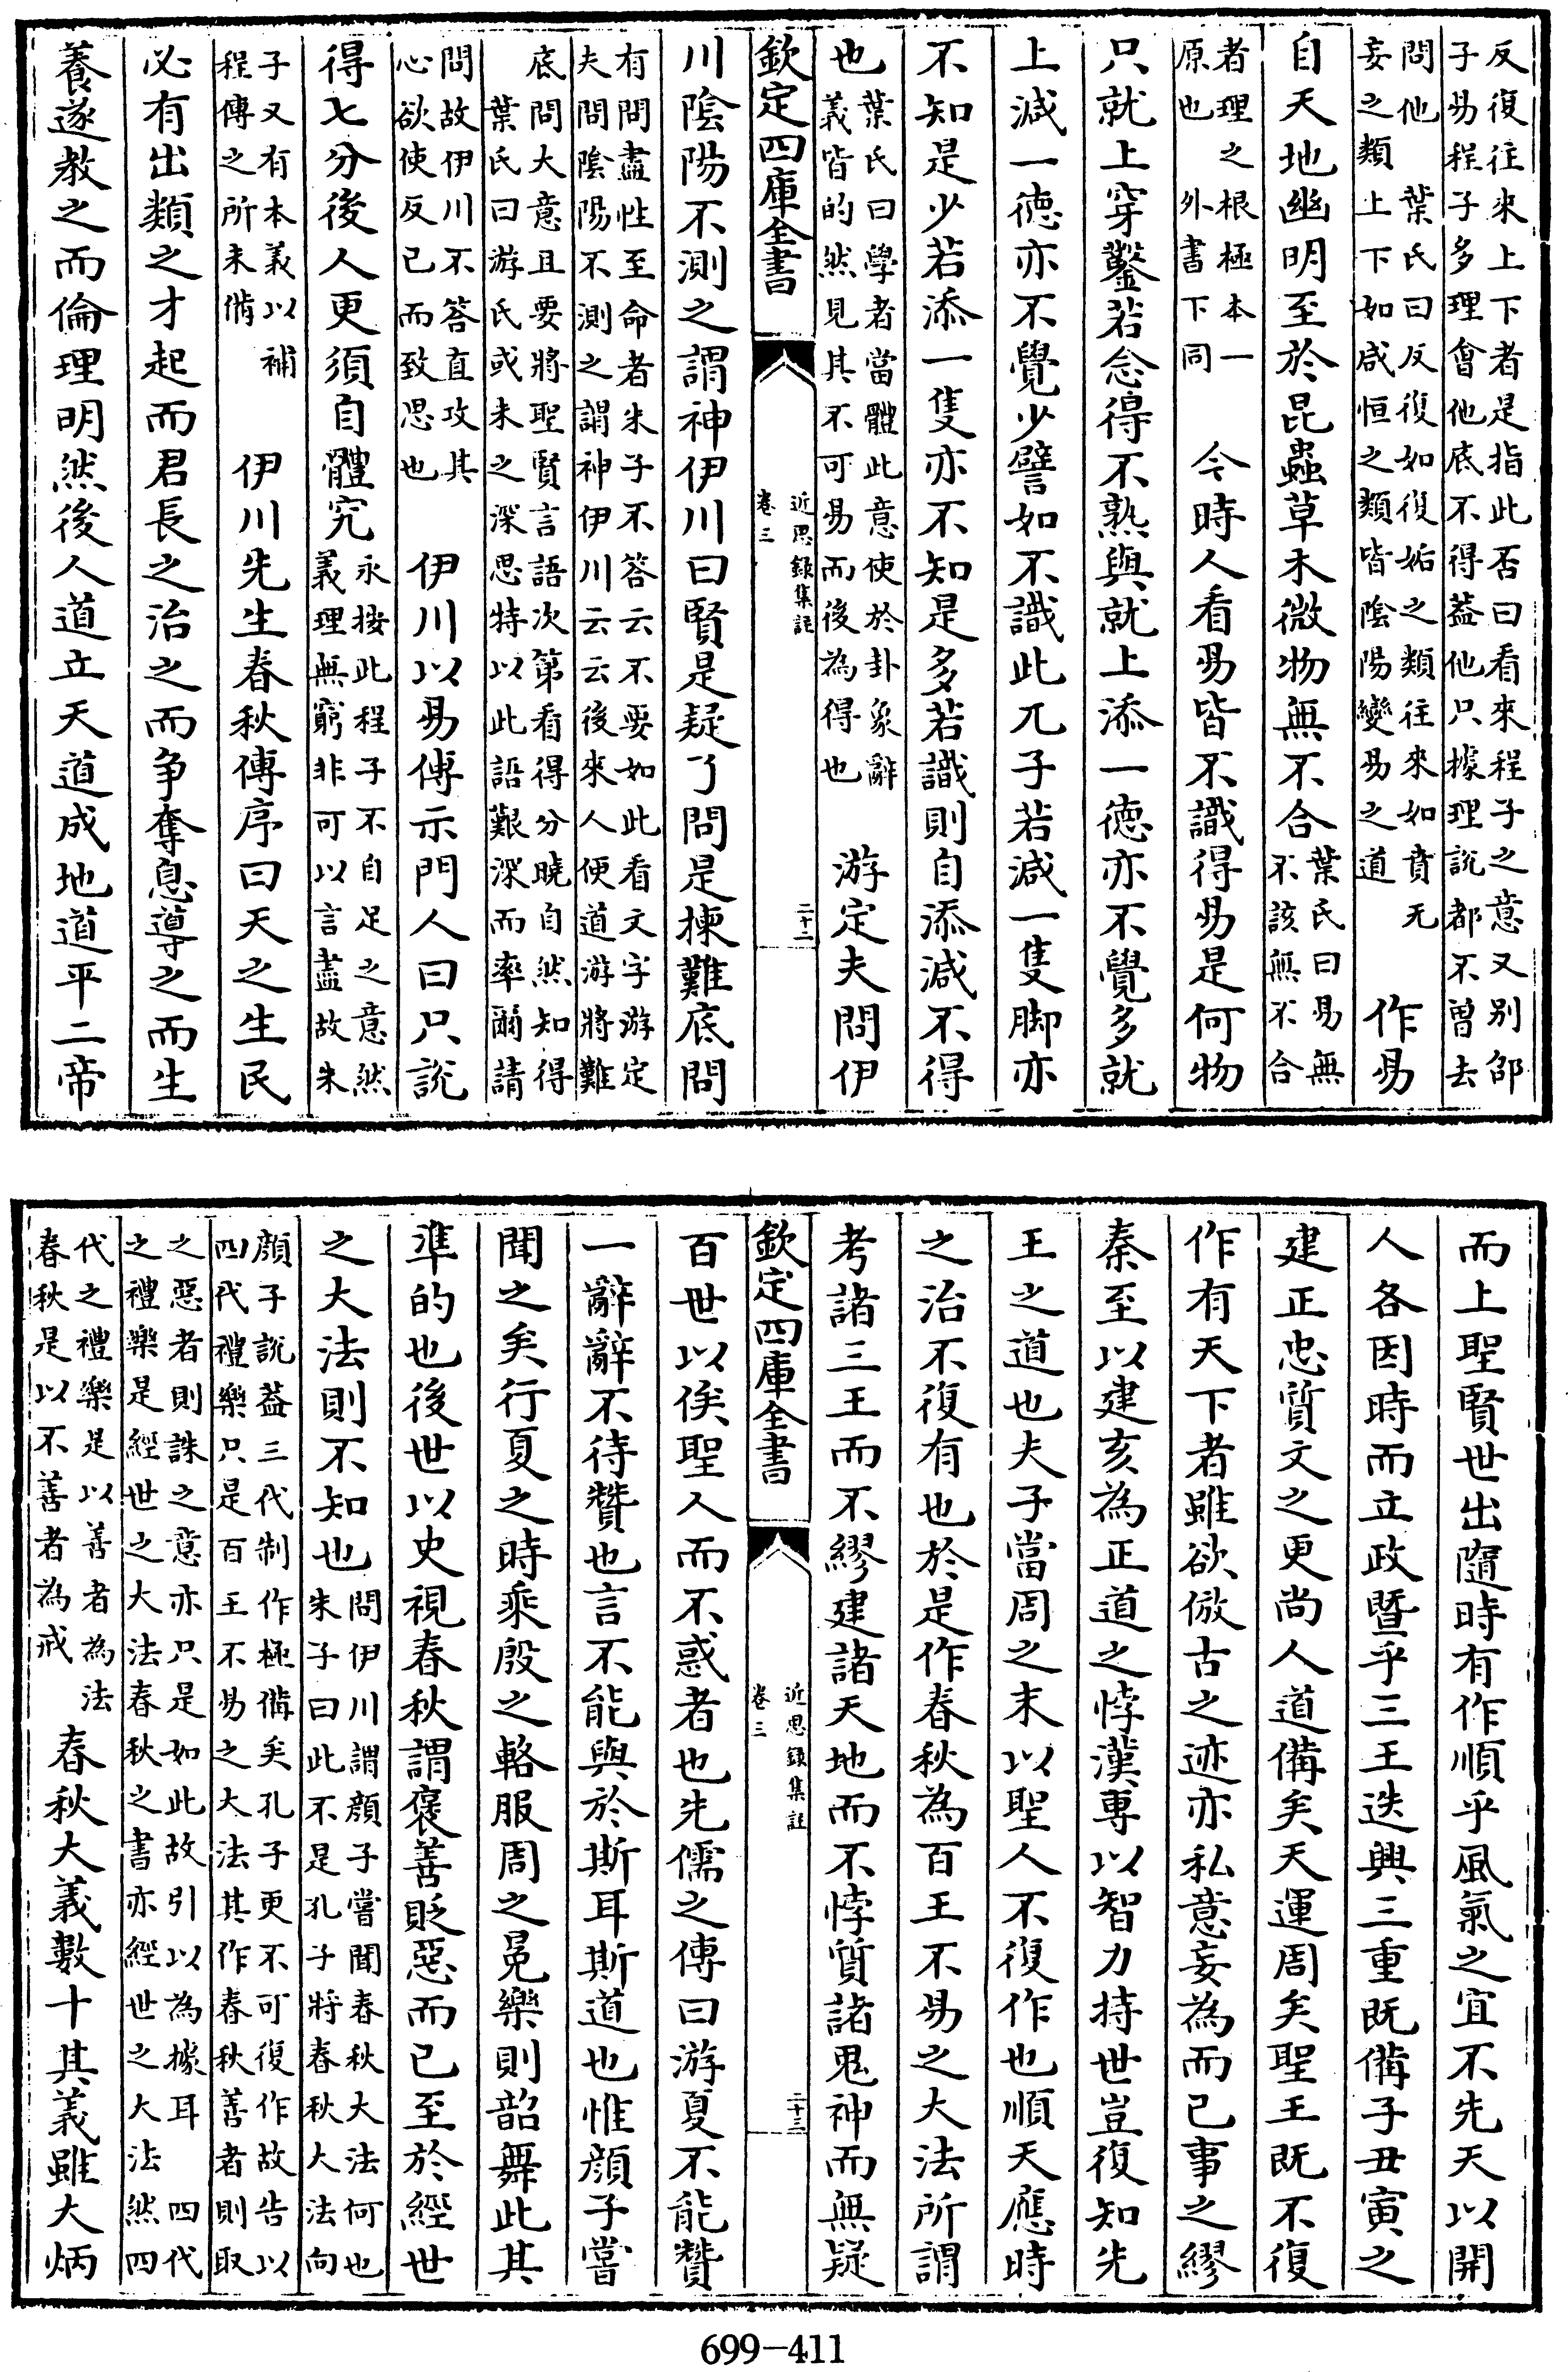 反復往來上下者是指此否曰看來程子之意又别邵
子易程子多理會他底不得葢他只據理說都不曽去
問他 葉氏曰反復如復姤之類往來如賁无
妄之類上下如咸恒之類皆陰陽變易之道 作易
自天地幽明至於昆蟲草木微物無不合葉氏曰易無
不該無不合
者理之根極本一
原也 外書下同 今時人看易皆不識得易是何物
只就上穿鑿若念得不熟與就上添一徳亦不覺多就
上減一徳亦不覺少譬如不識此兀子若減一隻脚亦
不知是少若添一隻亦不知是多若識則自添減不得
也葉氏曰學者當體此意使於卦象辭
義皆的然見其不可易而後為得也 游定夫問伊
欽定四庫全書
近思録集註
卷三
二十二
川陰陽不測之謂神伊川曰賢是疑了問是揀難底問
有問盡性至命者朱子不答云不要如此看文字游定
夫問陰陽不測之謂神伊川云云後來人便道游將難
底問大意且要將聖賢言語次第看得分曉自然知得
葉氏曰游氏或未之深思特以此語艱深而率爾請
問故伊川不答直攻其
心欲使反己而致思也 伊川以易傳示門人曰只說
得七分後人更須自體究永按此程子不自足之意然
義理無窮非可以言盡故朱
子又有本義以補
程傳之所未備 伊川先生春秋傳序曰天之生民
必有出類之才起而君長之治之而争奪息導之而生
養遂教之而倫理明然後人道立天道成地道平二帝
而上聖賢世出隨時有作順乎風氣之宜不先天以開
人各因時而立政暨乎三王迭興三重既備子丑寅之
建正忠質文之更尚人道備矣天運周矣聖王既不復
作有天下者雖欲倣古之迹亦私意妄為而已事之繆
秦至以建亥為正道之悖漢專以智力持世豈復知先
王之道也夫子當周之末以聖人不復作也順天應時
之治不復有也於是作春秋為百王不易之大法所謂
考諸三王而不繆建諸天地而不悖質諸鬼神而無疑
欽定四庫全書
近思録集註
卷三
二十三
百世以俟聖人而不惑者也先儒之傳曰游夏不能贊
一辭辭不待贊也言不能與於斯耳斯道也惟顔子嘗
聞之矣行夏之時乘殷之輅服周之冕樂則韶舞此其
準的也後世以史視春秋謂褒善貶惡而已至於經世
之大法則不知也問伊川謂顔子嘗聞春秋大法何也
朱子曰此不是孔子將春秋大法向
顔子說葢三代制作極備矣孔子更不可復作故告以
四代禮樂只是百王不易之大法其作春秋善者則取
之惡者則誅之意亦只是如此故引以為據耳 四代
之禮樂是經世之大法春秋之書亦經世之大法然四
代之禮樂是以善者為法
春秋是以不善者為戒 春秋大義數十其義雖大炳
699-411